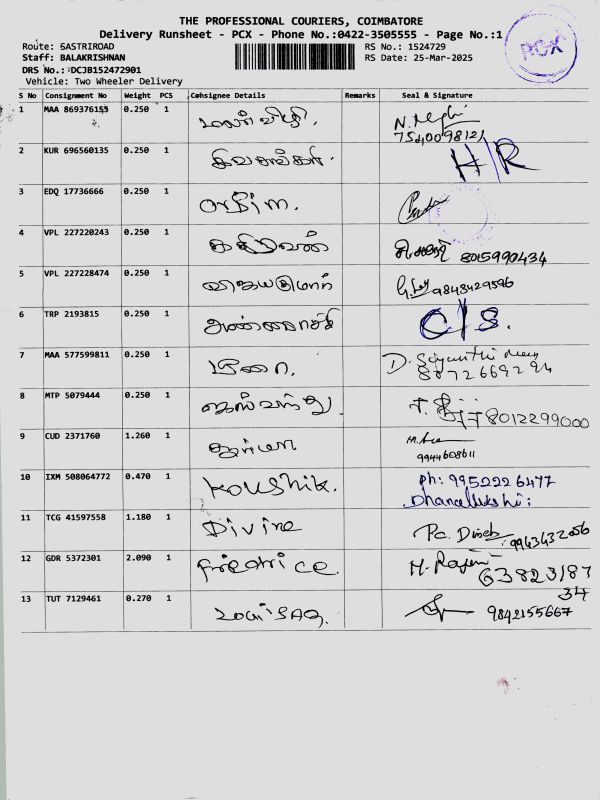 THE PROFESSIONAL COURIERS, COIMBATORE
Delivery Runsheet - PCX - Phone No.:0422-3505555 - Page No.:1
Route: SASTRIROAD
RS No.: 1524729
Staff: BALAKRISHNAN
RS Date: 25-Mar-2025
DRS No.: DCJB152472901
Vehicle: Two Wheeler Delivery
PCX
S No Consignment No Weight PCS Consignee Details Remarks Seal & Signature
1 MAA 869376155 0.250 1 மலர்விழி. N.
7540098121
2 KUR 696560135 0.250 1 சிவசங்கர். H/R
3 EDQ 17736666 0.250 1
4 VPL 227220243 0.250 1 கதிர்வேண் 8015990434
5 VPL 227228474 0.250 1 விஜயகுமார் 9843429596
6 TRP 2193815 0.250 1 C/S.
7 MAA 577599811 0.250 1 D.
8872669294
8 MTP 5079444 0.250 1 8012299000
9 CUD 2371760 1.260 1
9944608611
10 IXM 508064772 0.470 1 Koushik. Ph: 9952226477
Dhanallukshi:
11 TCG 41597558 1.180 1 Divine 9943432056
12 GDR 5372301 2.090 1 Friedrice. 63823187
34
13 TUT 7129461 0.270 1 9842155667